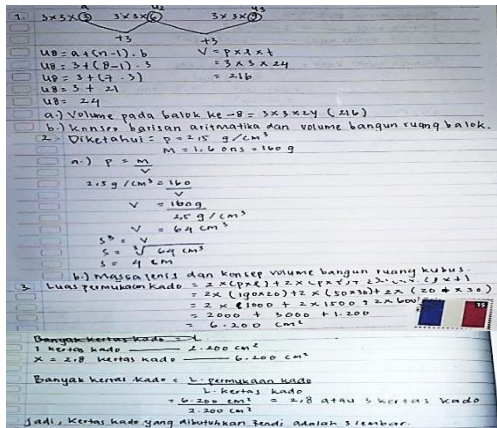 a U2 U3
1. 3x3x3 3x3x6 3x3x9
+3 +3
U8 = a+(n-1).b V = p x l x t
U8 = 3+(8-1).3 = 3 x 3 x 24
U8 = 3+(7.3) = 216
U8 = 3 + 21
U8 = 24
a.) Volume pada balok ke-8 = 3x3x24 (216)
b.) konsep barisan aritmatika dan volume bangun ruang balok.
2. Diketahui = p = 2,5 g/cm³
m = 1,6 ons = 160 g
a.) p = m/V
2,5 g/cm³ = 160/V
V = 160g/2,5 g/cm³
V = 64 cm³
s³ = V
s = ³√64 cm³
s = 4 cm
b.) Massa jenis dan konsep volume bangun ruang kubus.
3. Luas permukaan kado = 2x(pxl)
= 2x (50x30)+2x (20 x 30)
= 2x 1000 + 2x1500 + 2x600
= 2000 + 3000 + 1.200
= 6.200 cm²
Banyak kertas kado = L
1 kertas kado 2.200 cm²
x = 2,8 kertas kado 6.200 cm²
Banyak kertas kado = L. permukaan kado
L. kertas kado
= 6.200 cm² = 2,8 atau 3 kertas kado
2.200 cm²
Jadi, kertas kado yang dibutuhkan adalah 3 lembar.
15